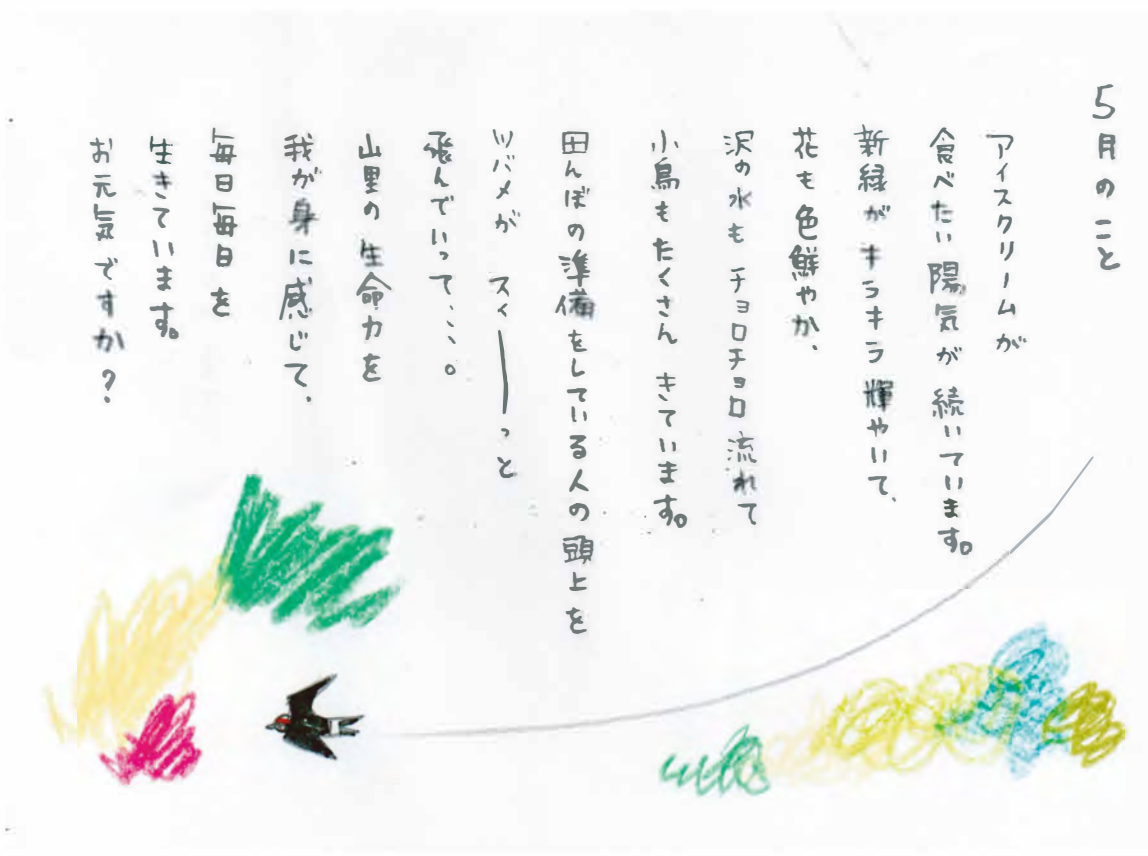 5月のこと
アイスクリームが
食べたい陽気が続いています。
新緑がキラキラ輝やいて、
花も色鮮やか、
沢の水もチョロチョロ流れて
小鳥もたくさんきています。
田んぼの準備をしている人の頭上を
ツバメが スィーーっと
飛んでいって、、、。
山里の生命力を
我が身に感じて、
毎日毎日を
生きています。
お元気ですか？